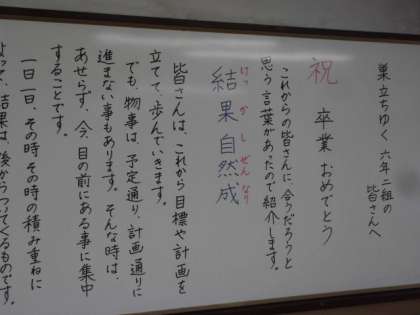 巣立ちゆく 六年二組の
皆さんへ
祝 卒業 おめでとう
これからの皆さんに合うだろうと
思う言葉があったので紹介します。
けっ か し ぜん なり
結果自然成
皆さんは、これから目標や計画を
立てて、歩んでいきます。
でも、物事は、予定通り、計画通りに
進まない事もあります。そんな時は、
あせらず、今、目の前にある事に集中
することです。
一日一日、その時その時の積み重ねに
よって、結果は、後からついてくるものです。